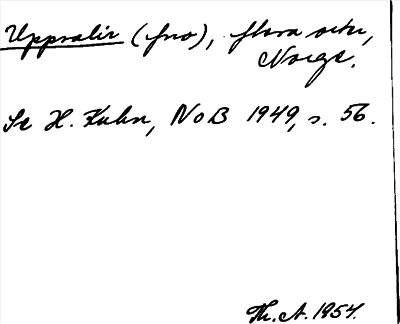 Uppsalir (fno), flera orter,
Norge.
Se H. Kuhn, NoB 1949, s. 56.
Th. A. 1954.